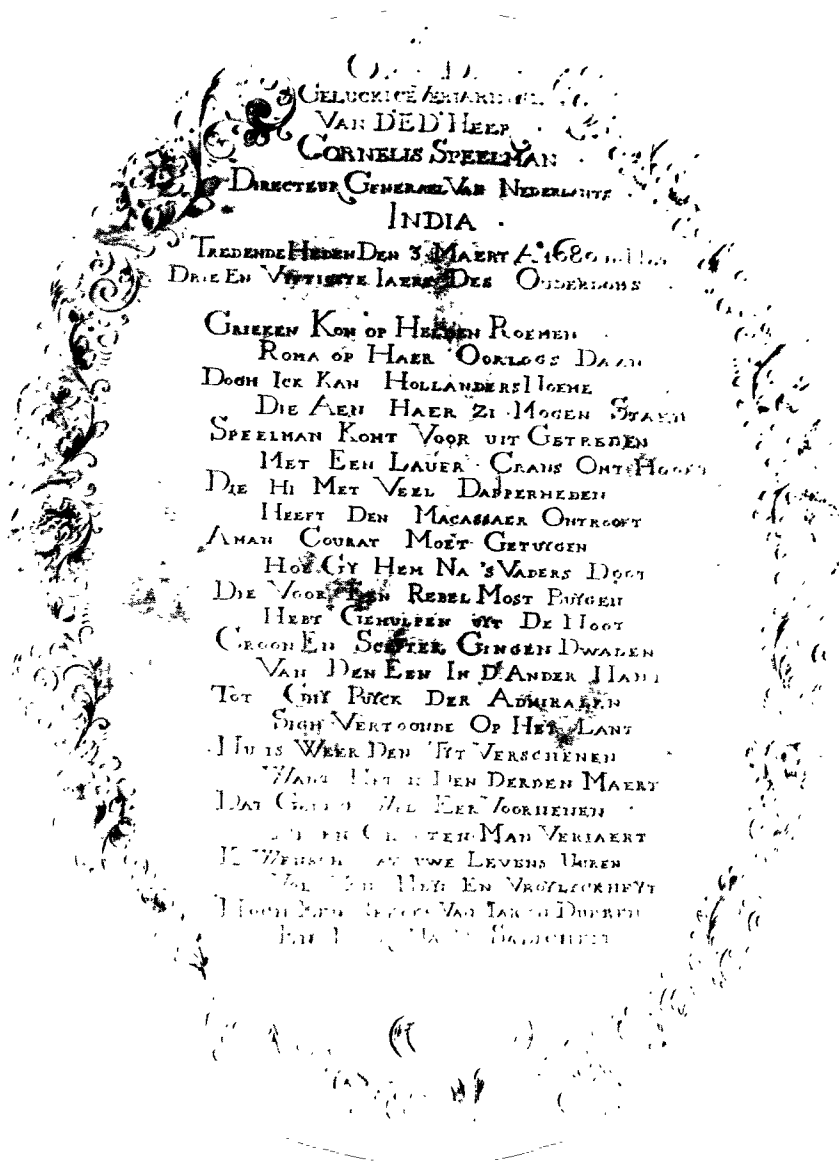 Op De
Geluckige Veriaringe
Van D'E D'Heer
Cornelis Speelman
Directeur Generael Van Nederlants
India
Tredende Heden Den 3 Maert Ao 1680 in Het
Drie En Vyftigste Iaere Des Ouderdoms
Grieken Kon op Helden Roemen
Roma op Haer Oorlogs Daan
Doch Ick Kan Hollanders Noeme
Die Aen Haer Zi Mogen Staen
Speelman Komt Voor uit Getreden
Met Een Lauer Crans Omt Hooft
Die Hi Met Veel Dapperheden
Heeft Den Macassaer Ontrooft
Aman Courat Moet Getuygen
Hoe Gy Hem Na 's Vaders Doot
Die Voor Een Rebel Most Buygen
Hebt Gehulpen uyt De Noot
Croon En Scepter Gingen Dwalen
Van Den Een In D'Ander Hant
Tot Ghy Puyck Der Admiralen
Sigh Vertoonde Op Het Lant
Nu is Weer Den Tyt Verschenen
Want Het is Den Derden Maert
Dat Eer Voorhenen
Man Veriaert
Ik Wensch Dat uwe Levens Uuren
Vol Van Heyl En Vroylyckheyt
Noch Een Van Iaren Dueren
Salicheit